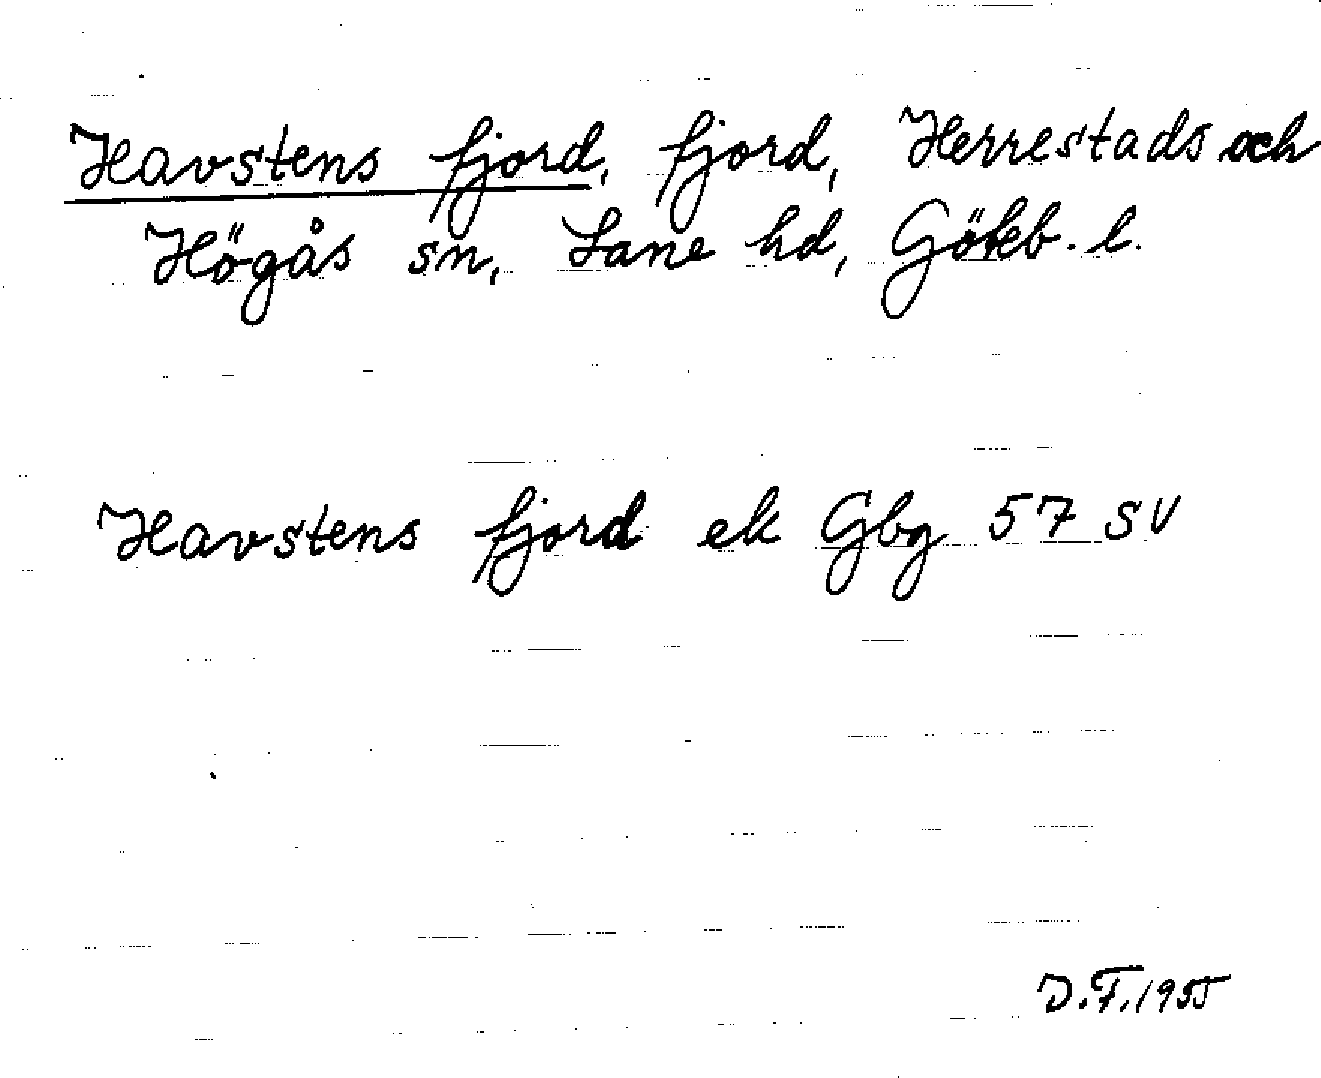 Havstens fjord, fjord, Herrestads och
Högås sn, Lane hd, Göteb. l.
Havstens fjord ek Gbg 57 SV
D.F. 1955